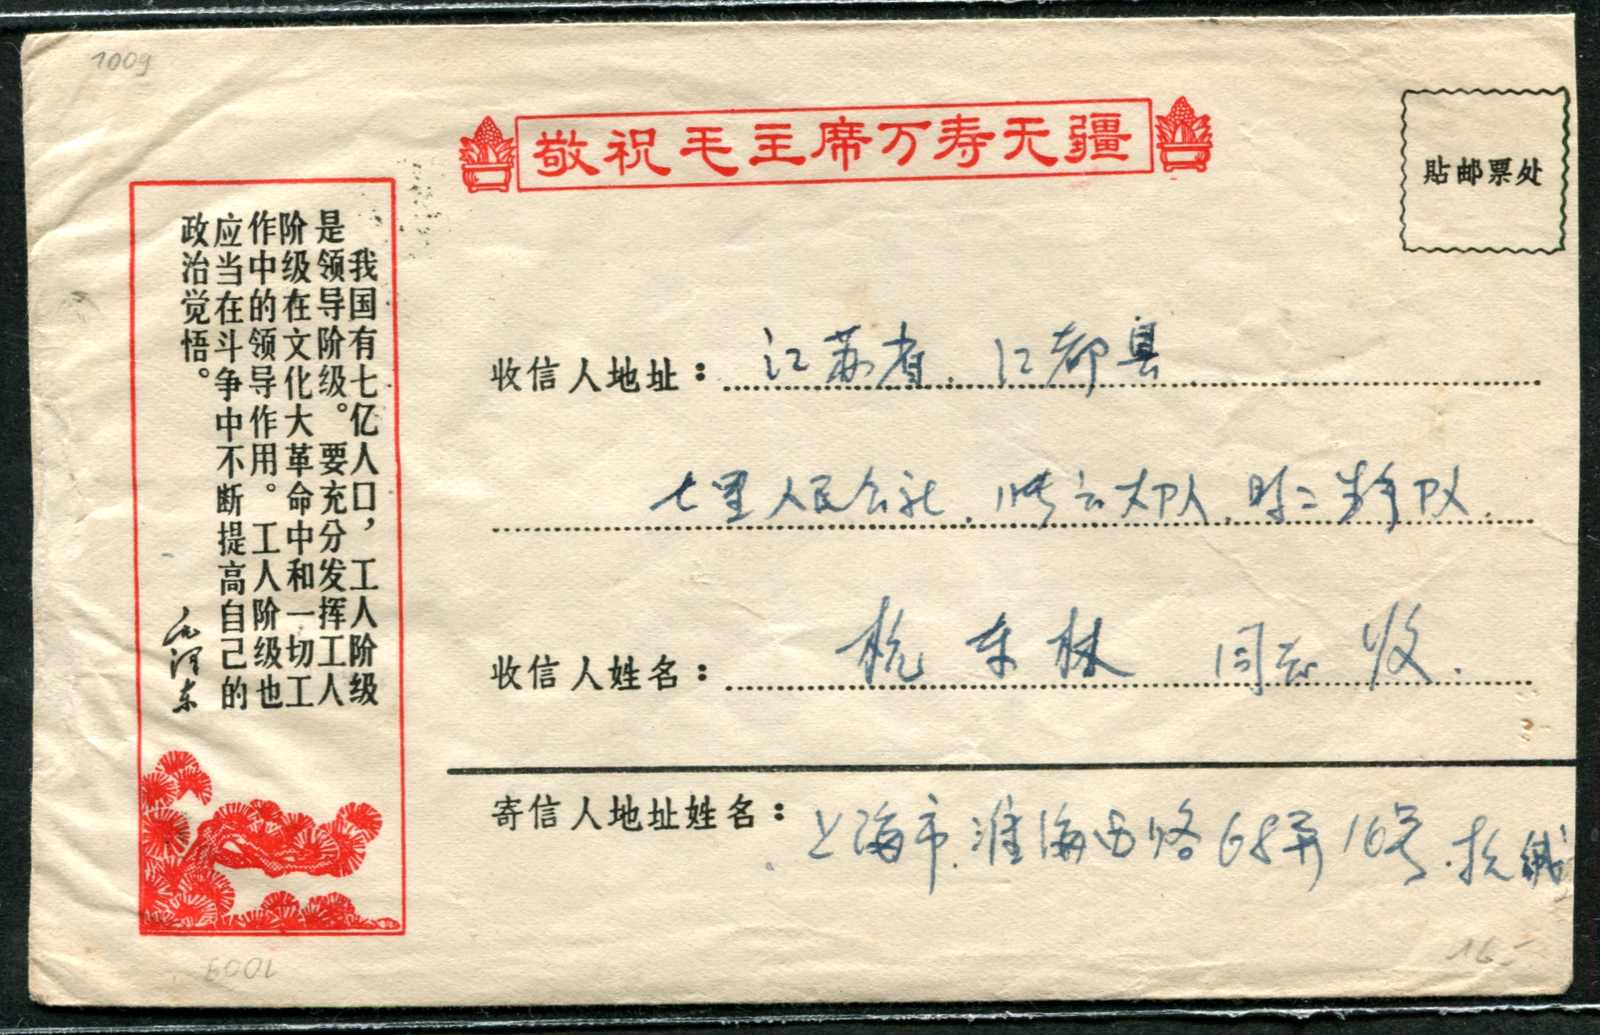 1009
敬祝毛主席万寿无疆
貼邮票处
我国有七亿人口，工人阶级
是领导阶级。要充分发挥工人
阶级在文化大革命中和一切工
作中的领导作用。工人阶级也
应当在斗争中不断提高自己的
政治觉悟。
毛泽东
收信人地址：江苏省．江都县
七里人民公社．
收信人姓名：杭东林 同志收．
寄信人地址姓名：上海市．淮海西路68弄16号．杭缄
1009